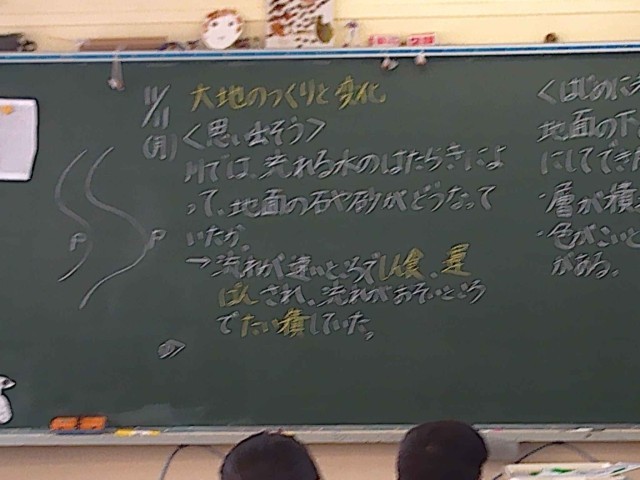 11/11(月)
大地のつくりと変化
<思い出そう>
川では、流れる水のはたらきによ
って、地面の石や砂がどうなって
いたか。
→流れが速いところでしん食、運
ぱんされ、流れがおそいところ
でたい積していた。
P
P
<はじめに
地面の下
にしてでき
・層が積
・色がこいと
がある。